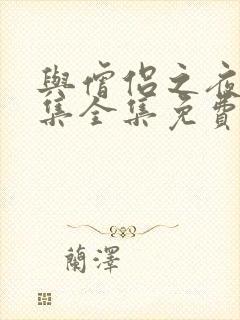 與僧侶之夜
集全集免費
蘭澤